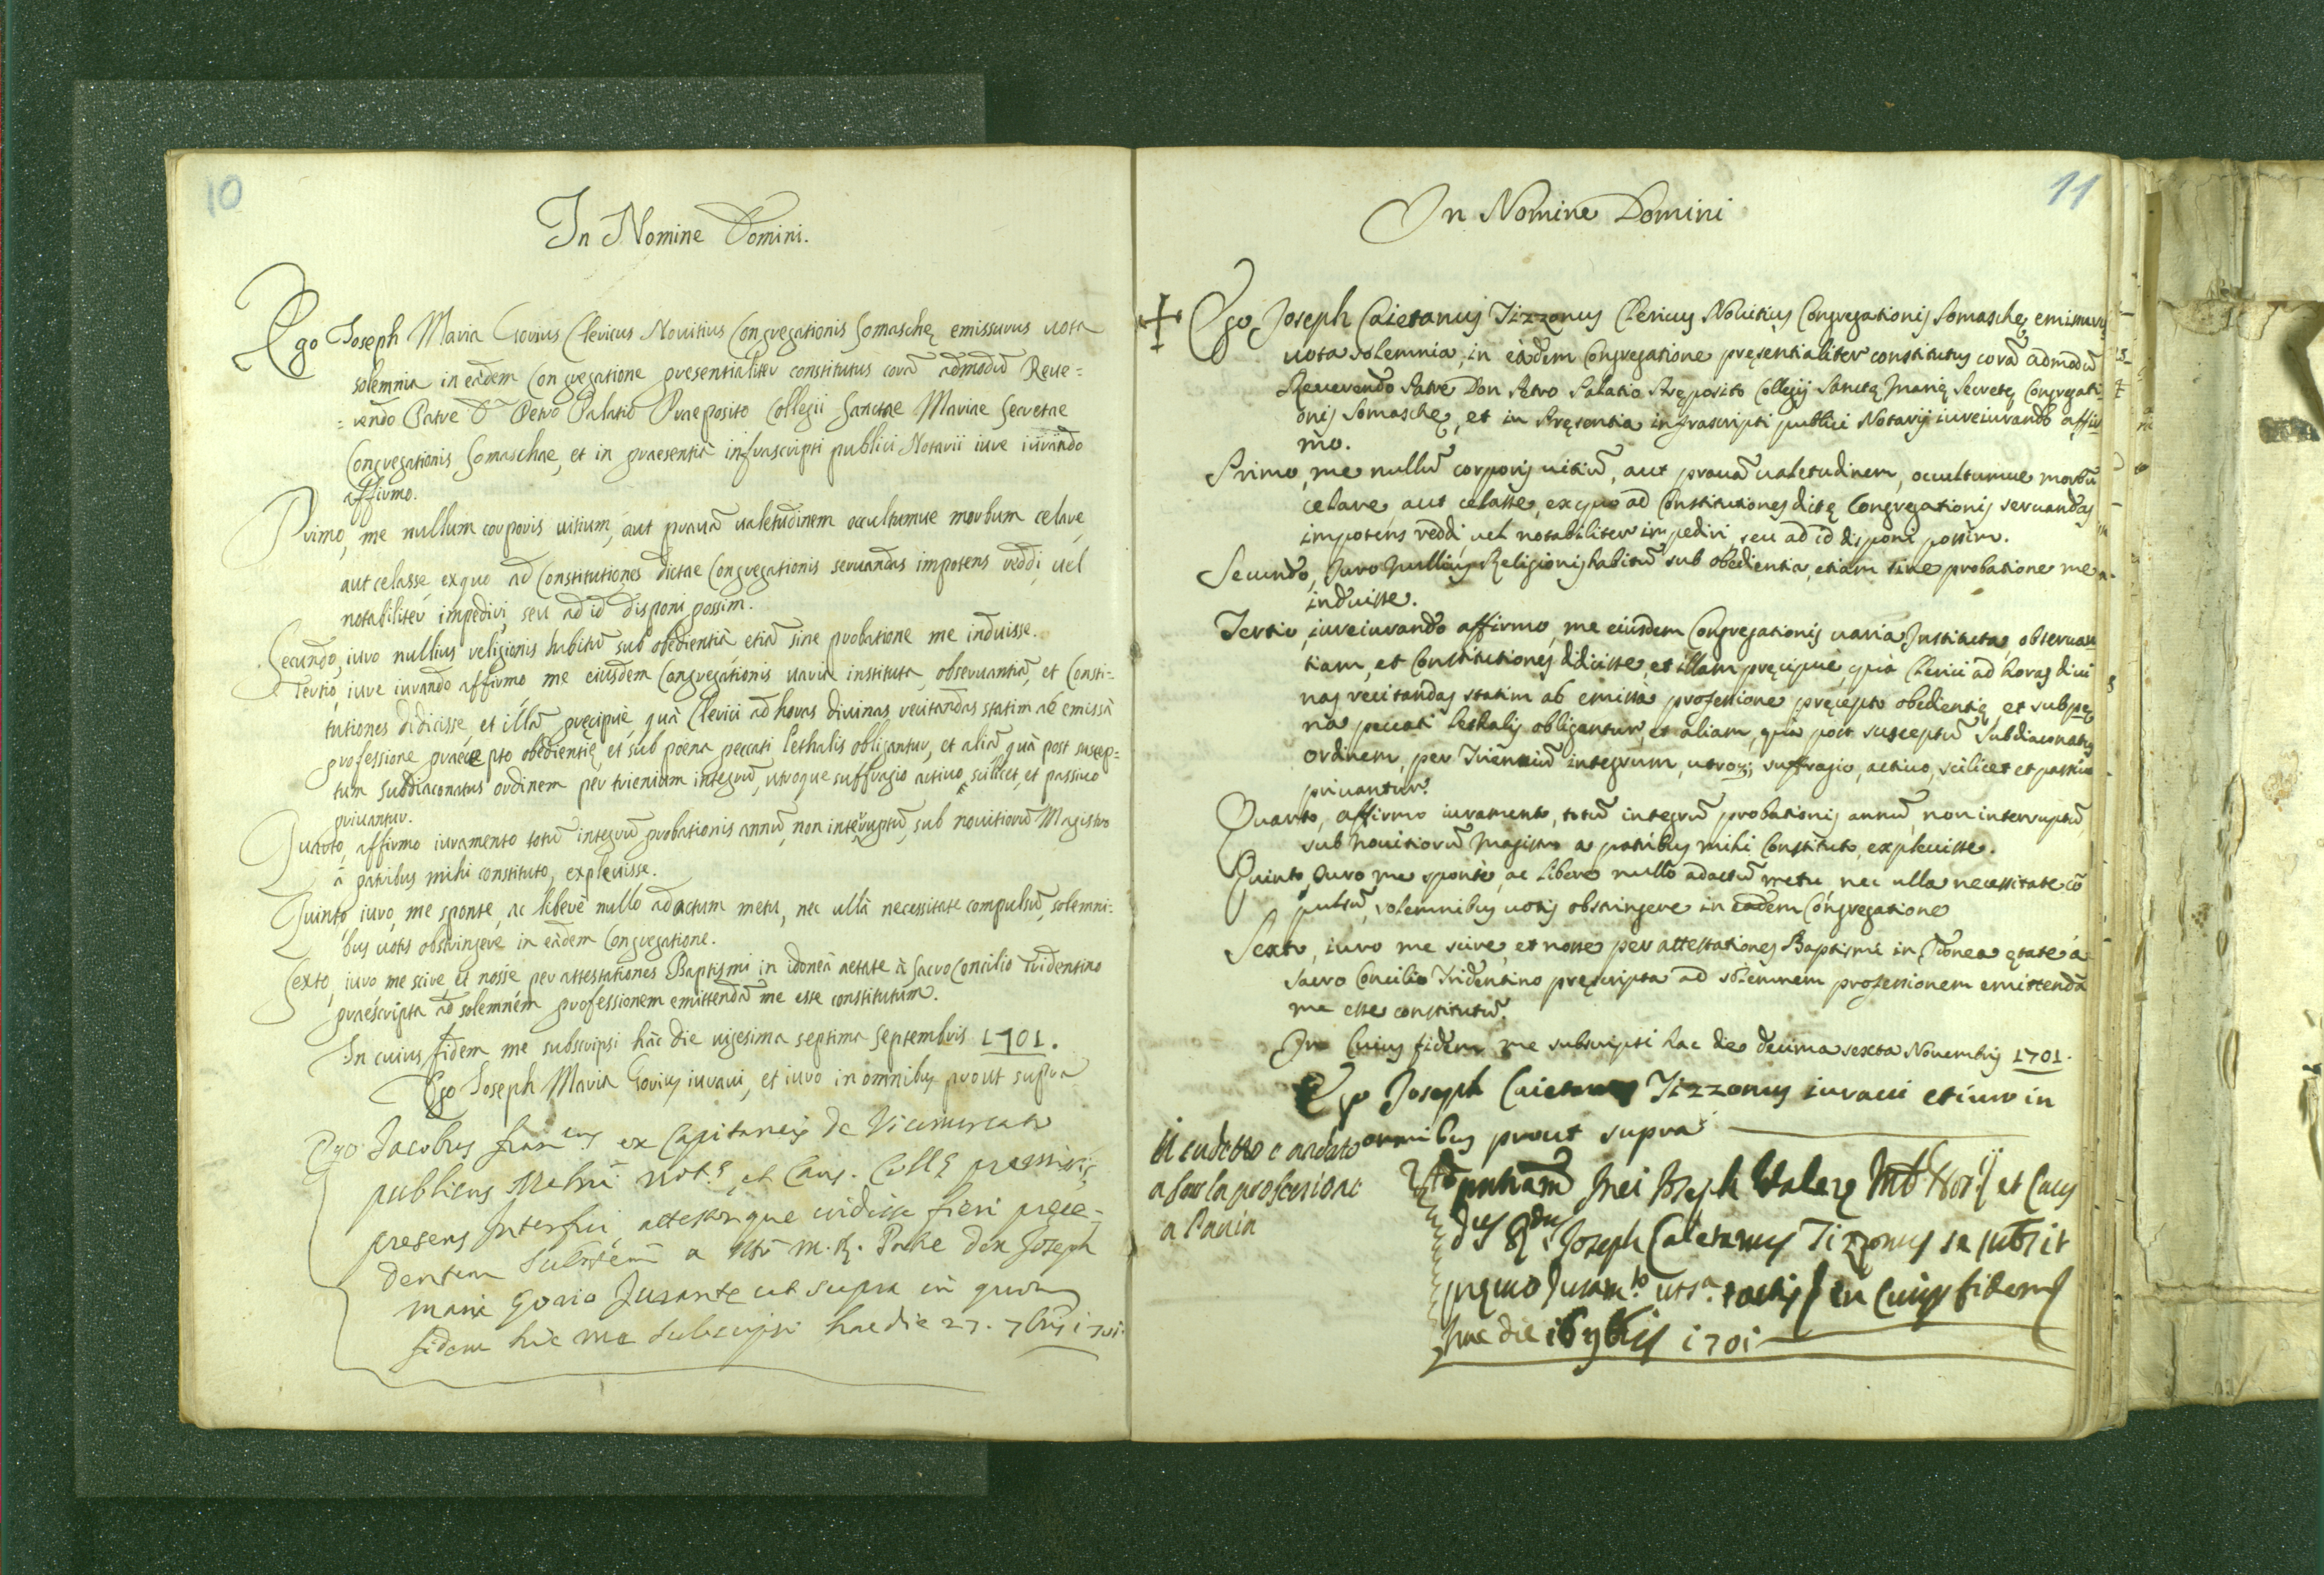 10
In Nomine Domini.
Ego Joseph Maria Gorius Clericus Novitius Congregationis Somaschę emissurus uota
solemnia in eàdem Congregatione presentialiter constitutus corā admodū Reue=
=rendo Patre Dn Petro Palatio Praeposito Collegii Sanctae Mariae Secretae
Congregationis Somaschae, et in praesentià infrascripti publici Notarii iure iurando
affirmo.
Primo, me nullum corporis uitium, aut prauā ualetudinem occultumue morbum celare,
aut celasse, exquo ad Constitutiones dictae Congregationis seruandas impotens reddi, uel
notabiliter impediri, seu ad id disponi possim.
Secundo, iuro nullius religionis habitū sub obedientià etiā sine probatione me induisse.
Tertio, iure iurando affirmo me eiusdem Congregationis uaria instituta, obseruantiā, et Consti-
tutiones didicisse, et illā pręcipuè, quà Clerici ad horas diuinas recitandas statim ab emissà
professione praecepto obedientię, et sub poena peccati lethalis obligantur, et aliā, quà post suscep=
tum subdiaconatus ordinem per trienium integrū, utroque suffragio actiuo, scilicet, et passiuo
priuantur.
Quarto, affirmo iuramento totū integrū probationis annū, non interruptū, sub nouitiorū Magistro
à patribus mihi constituto, expleuisse.
Quinto, iuro, me sponte, ac liberè nullo adactum metu, nec ullà necessitate compulsū, solemni-
bus uotis obstringere in eàdem Congregatione.
Sexto, iuro me scire et nosse per attestationes Baptismi in idoneà aetate à Sacro Concilio Tridentino
praescripta ad solemnem professionem emittendā me esse constitutum.
In cuius fidem me subscripsi hàc die uigesima septima Septembris 1701.
Ego Joseph Maria Gorius iuraui, et iuro in omnibus prout supra
Ego Jacobus Fran.cus ex Capitaneis de Vicomercato
publicus Mediā Not.s et Caus. Coll.s premissis
presens interfui, attestorque vidisse fieri prece-
dentem a M. R. Patre Don Joseph
Maria Gorio Jurante ut supra in quorum
fidem hic me subscripsi hac die 27. 7bris 1701.
11
In Nomine Domini
Ego Joseph Caietanus Tizzonus Clericus Nouitius Congregationis Somaschę, emissurus
uota solemnia, in eàdem Congregatione pręsentialiter constitutus corā admodū
Reuerendo Patre Don Petro Palatio Pręposito Collegij Sanctę Marię Secretę Congregati-
onis Somaschę, et in Pręsentia infrascripti publici Notarij iureiurando affir
mo.
Primo, me nullū corporis uitiū, aut prauā ualetudinem, occultumue morbū
celare, aut celasse, ex quo ad Constitutiones dictę Congregationis seruandas
impotens reddi, uel notabiliter impediri, seu ad id disponi possim.
Secundo, Iuro Nullius Religionis habitū sub obedientia, etiam sine probatione me
induisse.
Tertio, iureiurando affirmo, me eiusdem Congregationis uaria Instituta, obseruan
tiam, et Constitutiones didicisse, et illam pręcipuè, qua Clerici ad horas diui
nas recitandas statim ab emissa professione pręcepto obedientię, et sub pę
na peccati lethalis obligantur, et aliam, qua post susceptū Subdiaconatus
ordinem, per Trienniū integrum, utroq; suffragio, actiuo, scilicet et passiuo
priuantur.
Quarto, affirmo iuramento, totū integrū probationis annū, non interruptū,
sub Nouitiorū Magistro a patribus mihi Constituto, expleuisse.
Quinto, Iuro me sponte, ac libere nullo adactū metu, nec ulla necessitate cō
pulsū, solemnibus uotis obstringere in eàdem Congregatione
Sexto, iuro me scire, et nosse per attestationes Baptismi in Idonea ętate à
Sacro Concilio Tridentino pręscripta ad solemnem professionem emittendā
me esse constitutū.
In Cuius fidem me subscripsi hac die decima sexta Nouembris 1701.
Ego Joseph Caietanus Tizzonus iuraui et iuro in
omnibus prout supra
Il cudetto e andato
a far la professione
a Pauia
Ad pntiam Mei Joseph et Caus
Joseph Caietanus Tizzonus se subsit
Juram.to uts.a tactis in Cuius fidem
hac die 16 9bris 1701